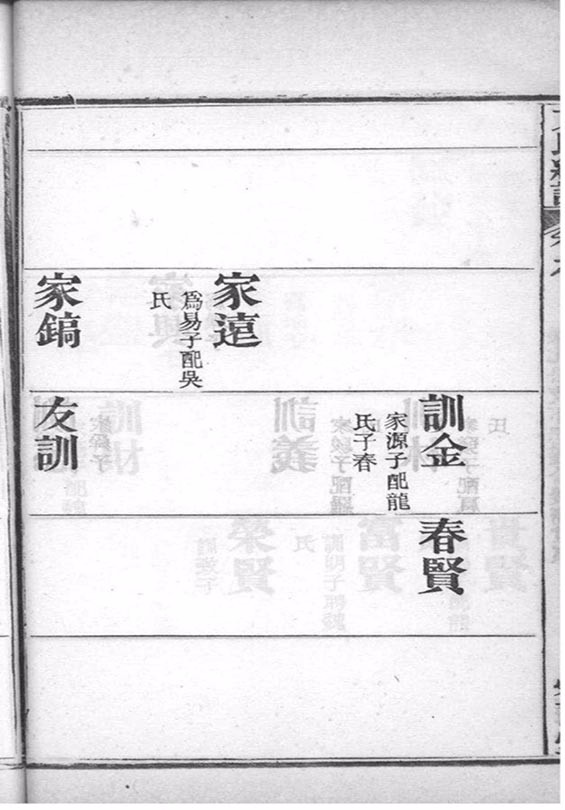 家遠
爲易子配吳
氏
家鎬
訓金
家源子配龍
氏子春
友訓
春賢